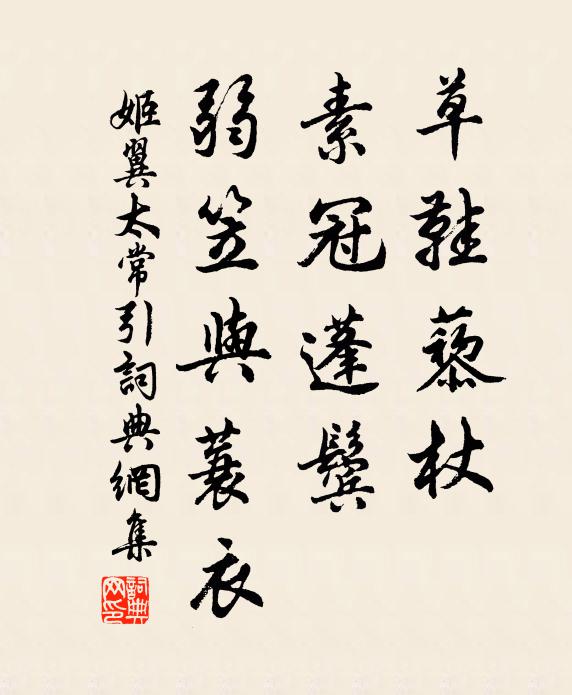 草鞋藜杖
素冠蓬鬓
弱笠與蓑衣
姬翼太常引詞典網集
詞典网印